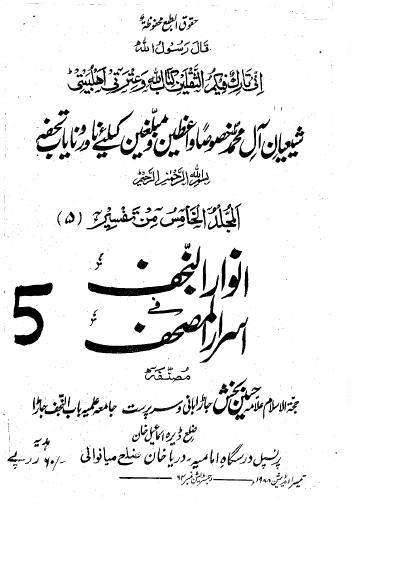 حقوق الطبع محفوظة
قال رسول اللہ
انی تارک فیکم الثقلین کتاب اللہ و عترتی اھلبیتی
شیعیان آل محمد خصوصا واعظین و مبلغین کیلئے نادر و نایاب تحفہ
بسم اللہ الرحمن الرحیم
المجلد الخامس من تفسیر (۵)
انوار النجف
فی
اسرار المصحف
5
مصنفہ
حجۃ الاسلام علامہ حسین بخش جاڑا بانی و سرپرست جامعہ علمیہ باب النجف جاڑا
ضلع ڈیرہ اسماعیل خان
پرنسپل درسگاہ امامیہ - دریا خان ضلع میانوالی
ہدیہ
۶۰/- روپے
تیسرا ایڈیشن ۱۹۸۸